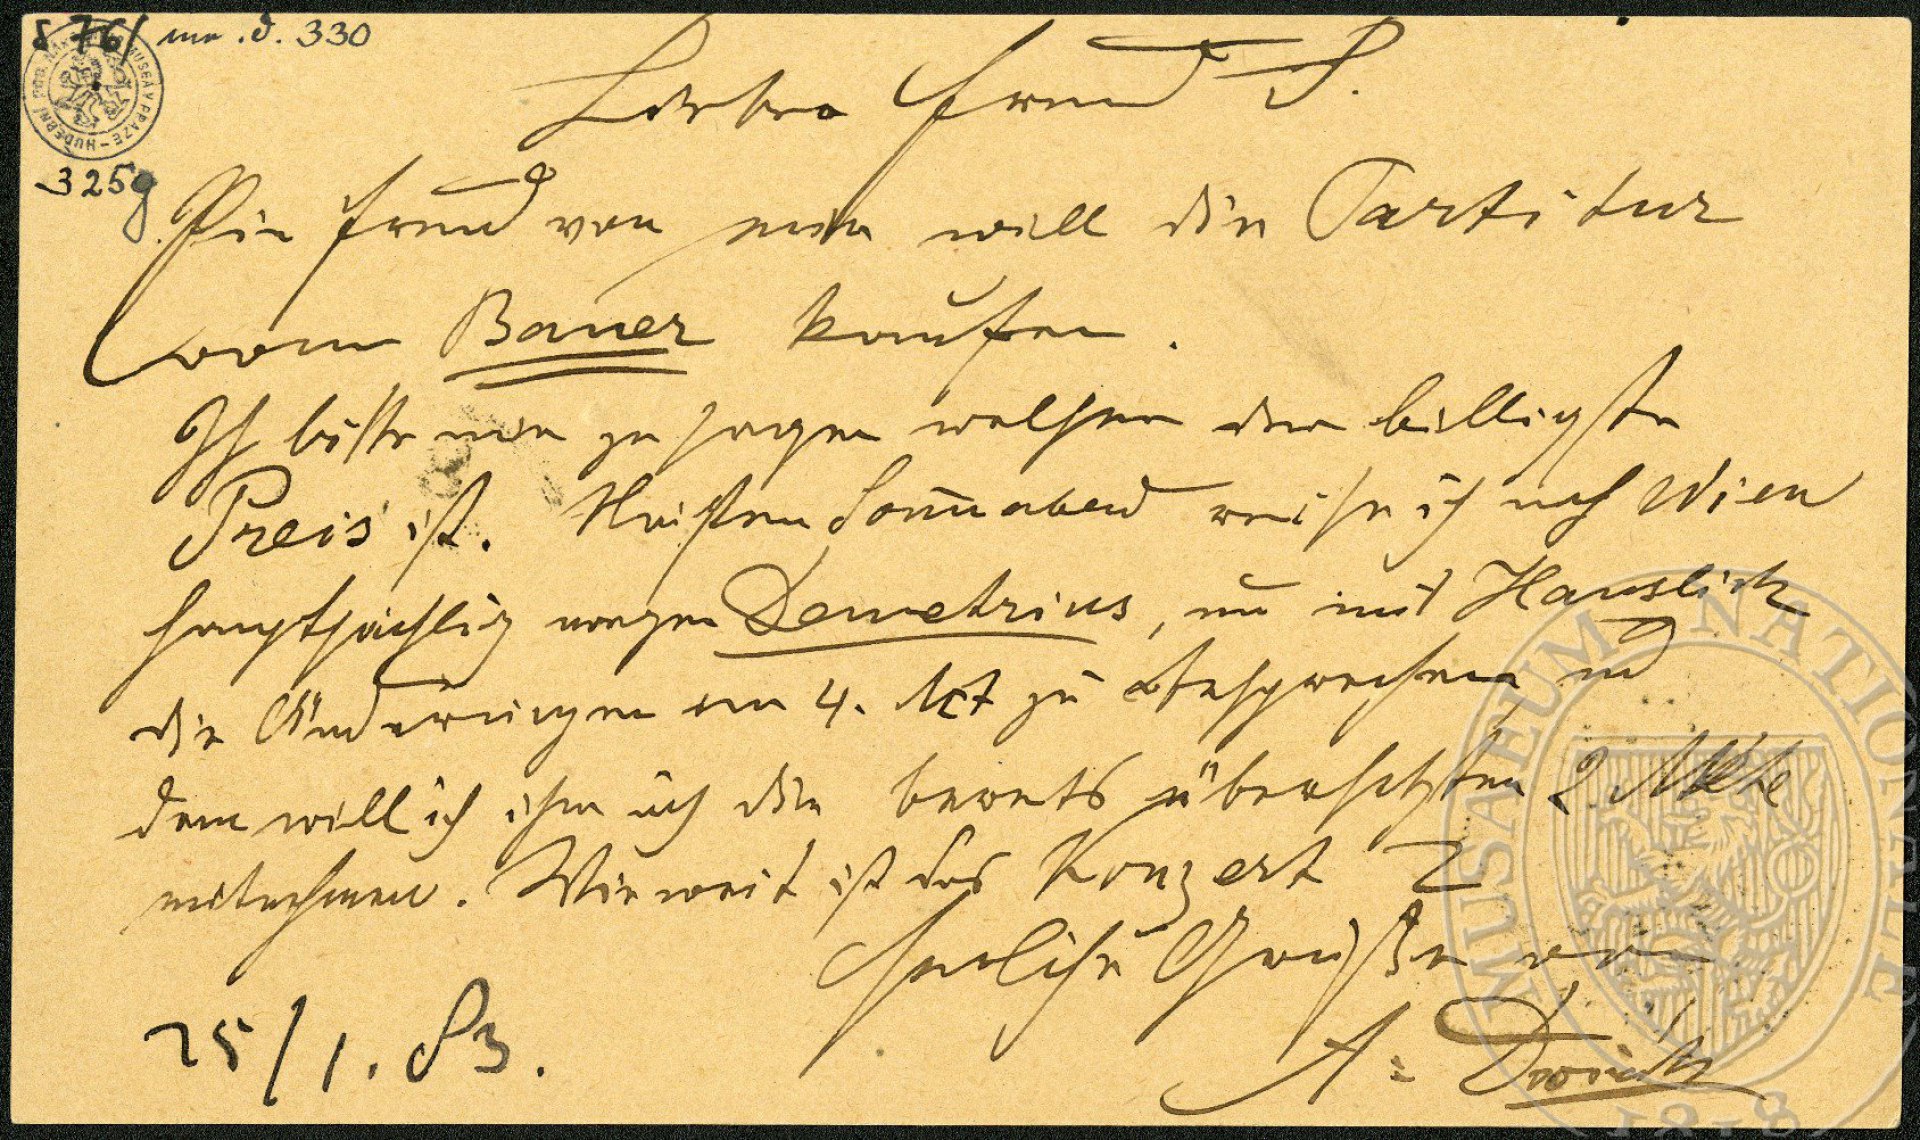 S 76/ inv. č. 330
HUDEBNÍ MUSEA V PRAZE
3259
Lieber Freund S.
Ein Freund von mir will die Partitur
vom Bauer kaufen.
Ich bitte mir zu sagen welcher der billigste
Preis ist. Nächsten Sonnabend reise ich nach Wien
hauptsächlich wegen Demetrius, um mit Hanslick
die Änderungen im 4. Act zu besprechen und
dem will ich ihm auch die bereits übersetzten 2 Akte
mitnehmen. Wie weit ist das Konzert?
Herzliche Grüße von
25/1. 83.
A: Dvořák
MUSAEUM NATIONALE
1818